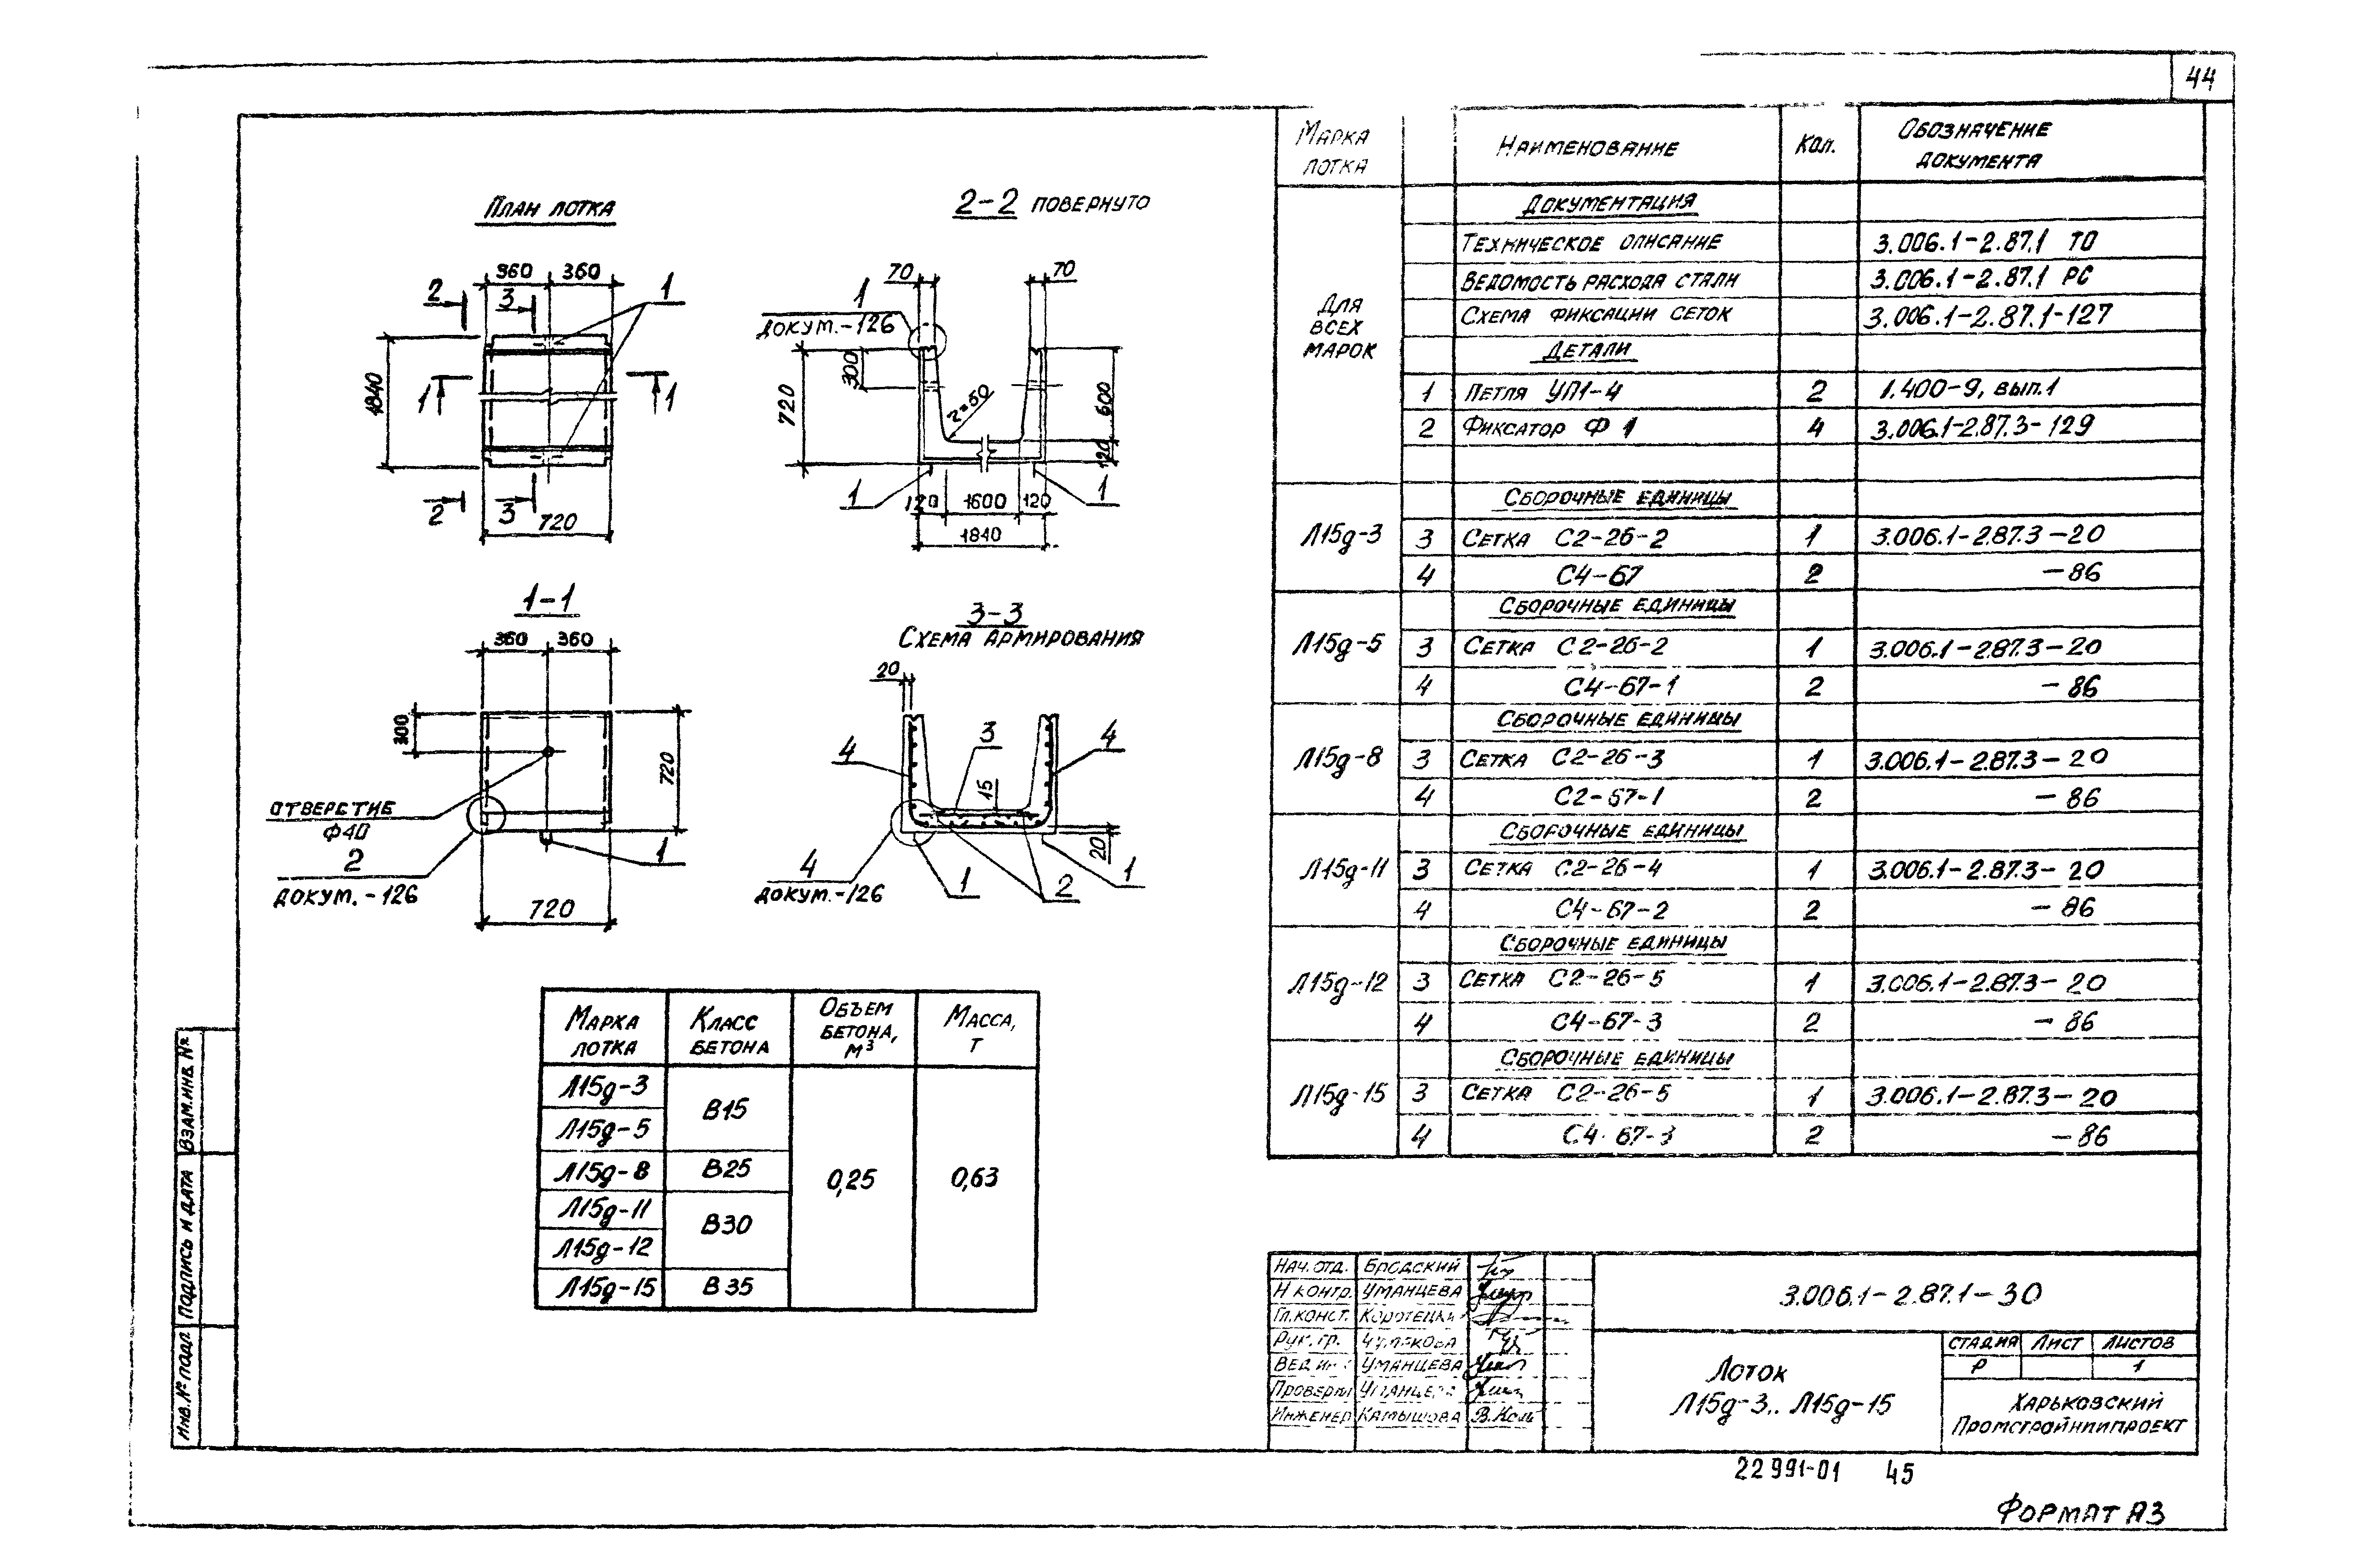 44
План лотка
360 360
2 3 1
1840
1 1
2 3
720
2-2 повернуто
70 70
1
докум.-126
300
720
r=50
600
120
1 1
120 1600 120
1840
1-1
360 360
300
720
отверстие
Ф40
2
докум.-126
1
720
3-3
Схема армирования
20
3
4 4
15
20
4
докум.-126
1 2 1
Марка лотка Класс бетона Объем бетона, м³ Масса, т
Л15д-3 В15 0,25 0,63
Л15д-5
Л15д-8 В25
Л15д-11 В30
Л15д-12
Л15д-15 В35
Марка лотка Наименование Кол. Обозначение документа
Для всех марок
Документация
Техническое описание 3.006.1-2.87.1 ТО
Ведомость расхода стали 3.006.1-2.87.1 РС
Схема фиксации сеток 3.006.1-2.87.1-127
Детали
1 Петля УП1-4 2 1.400-9, вып.1
2 Фиксатор Ф 1 4 3.006.1-2.87.3-129
Сборочные единицы
Л15д-3 3 Сетка С2-26-2 1 3.006.1-2.87.3-20
4 С4-67 2 -86
Сборочные единицы
Л15д-5 3 Сетка С2-26-2 1 3.006.1-2.87.3-20
4 С4-67-1 2 -86
Сборочные единицы
Л15д-8 3 Сетка С2-26-3 1 3.006.1-2.87.3-20
4 С2-67-1 2 -86
Сборочные единицы
Л15д-11 3 Сетка С2-26-4 1 3.006.1-2.87.3-20
4 С4-67-2 2 -86
Сборочные единицы
Л15д-12 3 Сетка С2-26-5 1 3.006.1-2.87.3-20
4 С4-67-3 2 -86
Сборочные единицы
Л15д-15 3 Сетка С2-26-5 1 3.006.1-2.87.3-20
4 С4-67-3 2 -86
Взам.инв.№
Подпись и дата
Инв.№ подл
Нач.отд. Бродский
Н контр. Уманцева
Гл.конст. Коротецкий
Рук.гр.
Вед.инж Уманцева
Проверил Уманцева
Инженер Камышова
3.006.1-2.87.1-30
Лоток
Л15д-3.. Л15д-15
стадия Лист Листов
Р 1
Харьковский
Промстройниипроект
22991-01 45
Формат А3